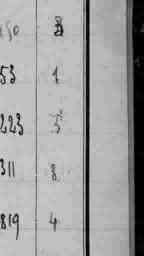 150 3
53 1
223 5
311 8
819 4